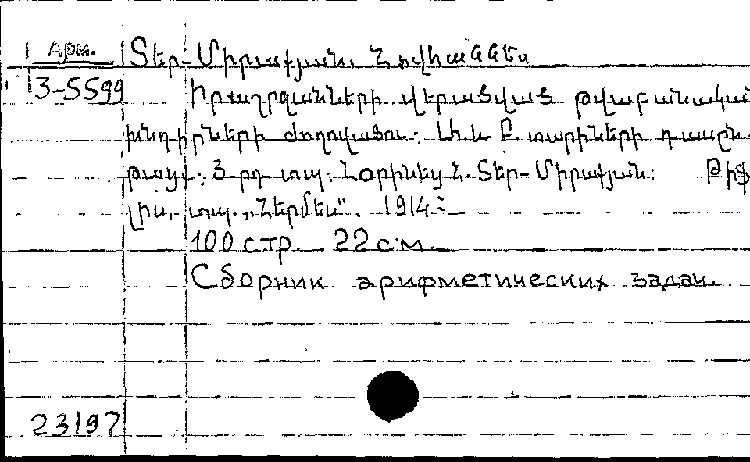 Арм. Տեր-Միրաքյան, Հովհաննես
3-5599 Իրազրգանների վերածված թվաբանական
խնդիրների ժողովածու: Ա և Բ տարիների դասըն-
թացք: 3-րդ տպ: Հօրինեց Հ. Տեր-Միրաքյան: Թիֆ-
լիս, տպ. „Հերմես“, 1914:
100 стр. 22 см.
Сборник арифметических задач.
23197